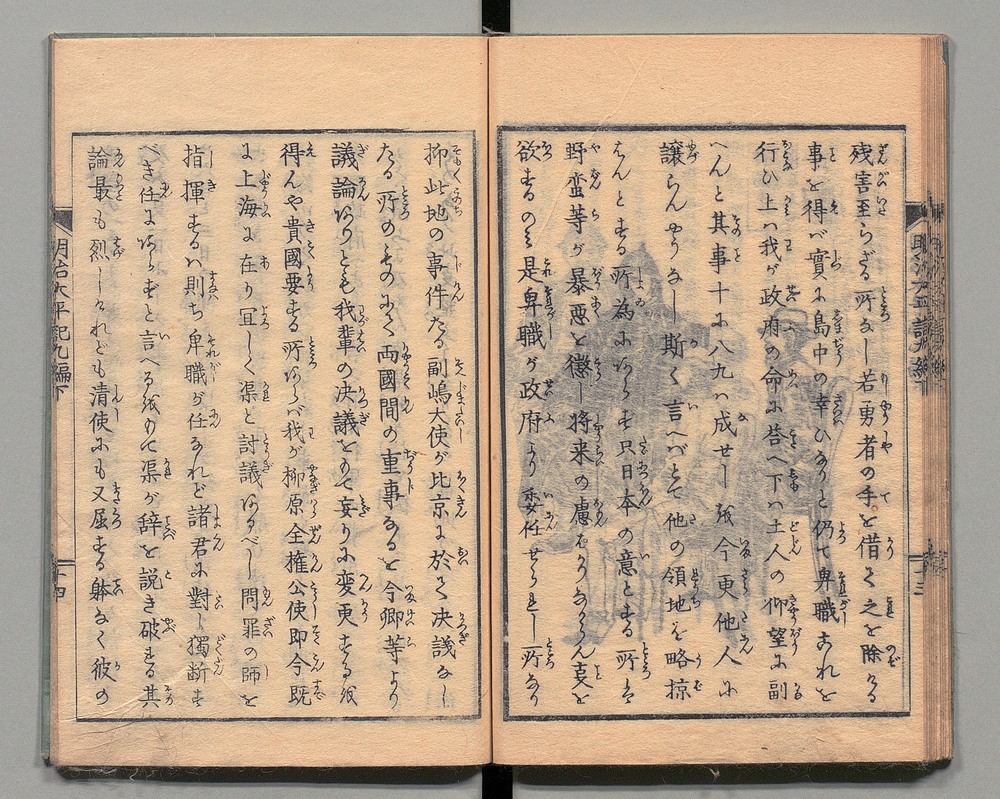 残害至らざる所なし若勇者の手を借て之を除かる
事を得バ實に島中の幸ひなりと仍て卑職これを
行ひ上ハ我が政府の命に荅へ下ハ土人の仰望に副
へんと其事十に八九ハ成せしを今更他人に
譲らんやうなし斯く言へバとて他の領地を略掠
せんとする所為にあらず只日本の意とする所は
野蛮等が暴悪を懲し将来の慮なからん事を
欲するのミ是卑職が政府より委任せられし所なり
抑此地の事件たる副嶋大使が北京に於て決議なし
たる所のものにて両國間の重事なるを今卿等より
議論ありとも我輩の決議をもて妄りに変更するを
得んや貴國要する所あらバ我が柳原全権公使即今既
に上海に在り冝しく渠と討議あるべし問罪の師を
指揮するハ則ち卑職が任なれど諸君に對し獨断す
べき任にあらずと言へるをもて渠が辞を説き破る其
論最も烈しけれども清使にも又屈する躰なく彼の
明治太平記九編下
十四